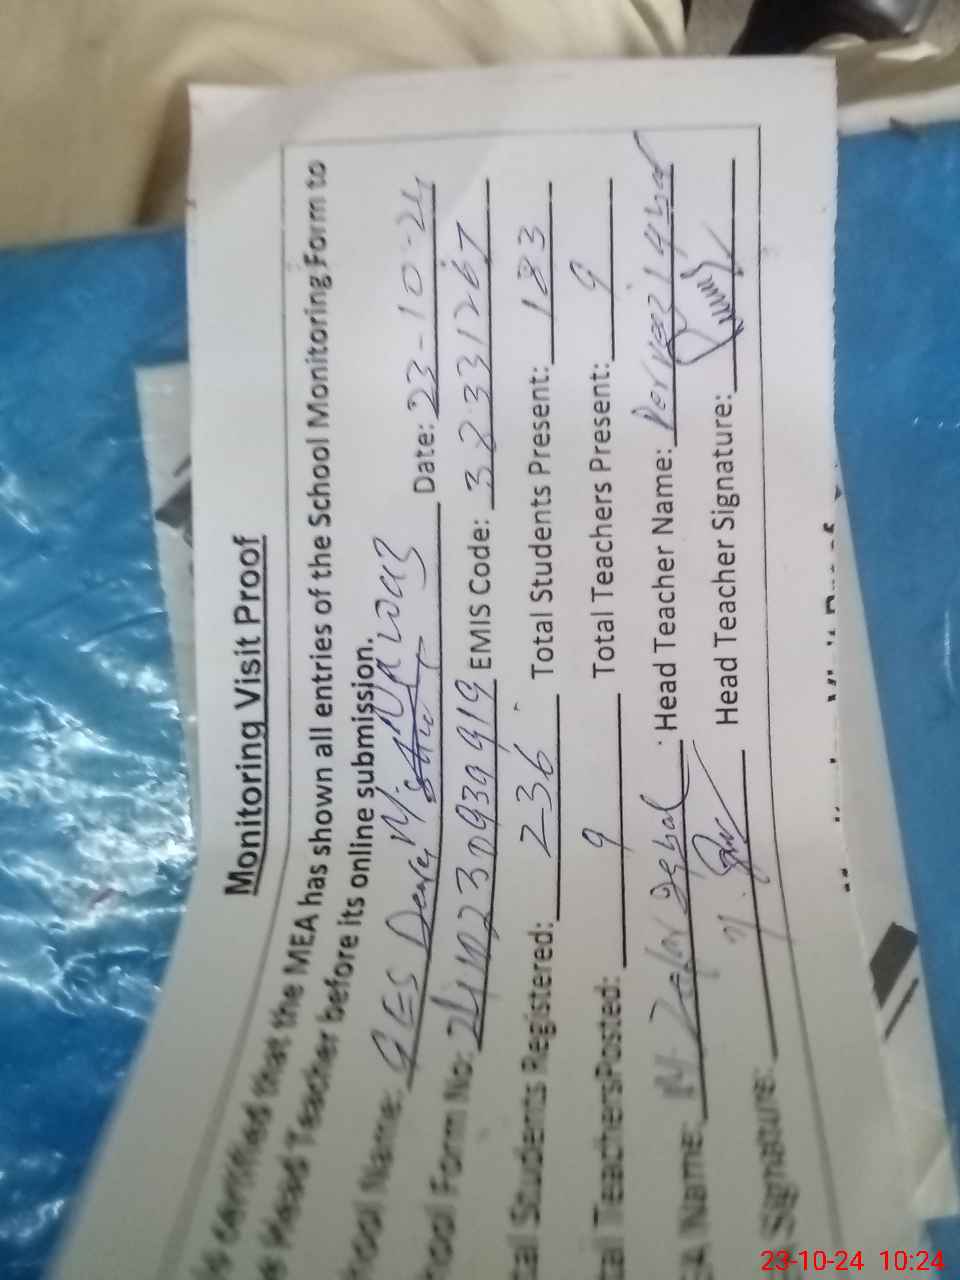 Monitoring Visit Proof
is certified that the MEA has shown all entries of the School Monitoring Form to
Head Teacher before its online submission.
hool Name: GES M. Nawaz Date: 23-10-24
hool Form No: 241023093991 9 EMIS Code: 38331267
tal Students Registered: 236 Total Students Present: 183
tal TeachersPosted: 9 Total Teachers Present: 9
A Name: M Zafar Iqbal Head Teacher Name: Pervez Iqbal
Signature: Head Teacher Signature:
23-10-24 10:24